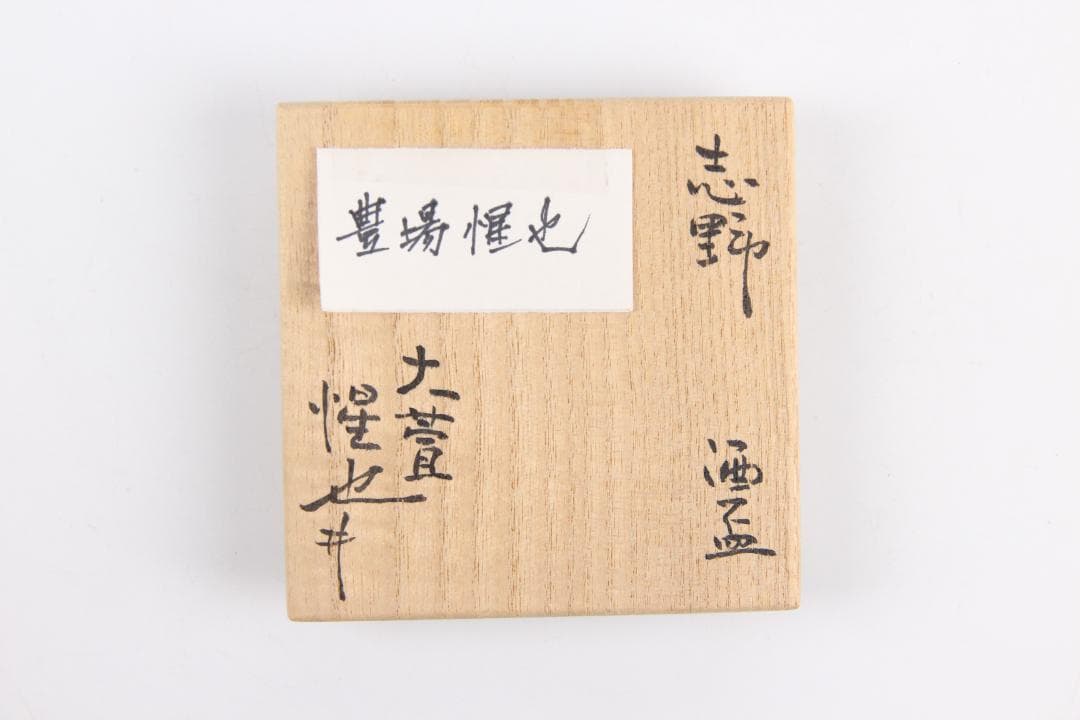 志野
酒盃
豊場惺也
大萱
惺也